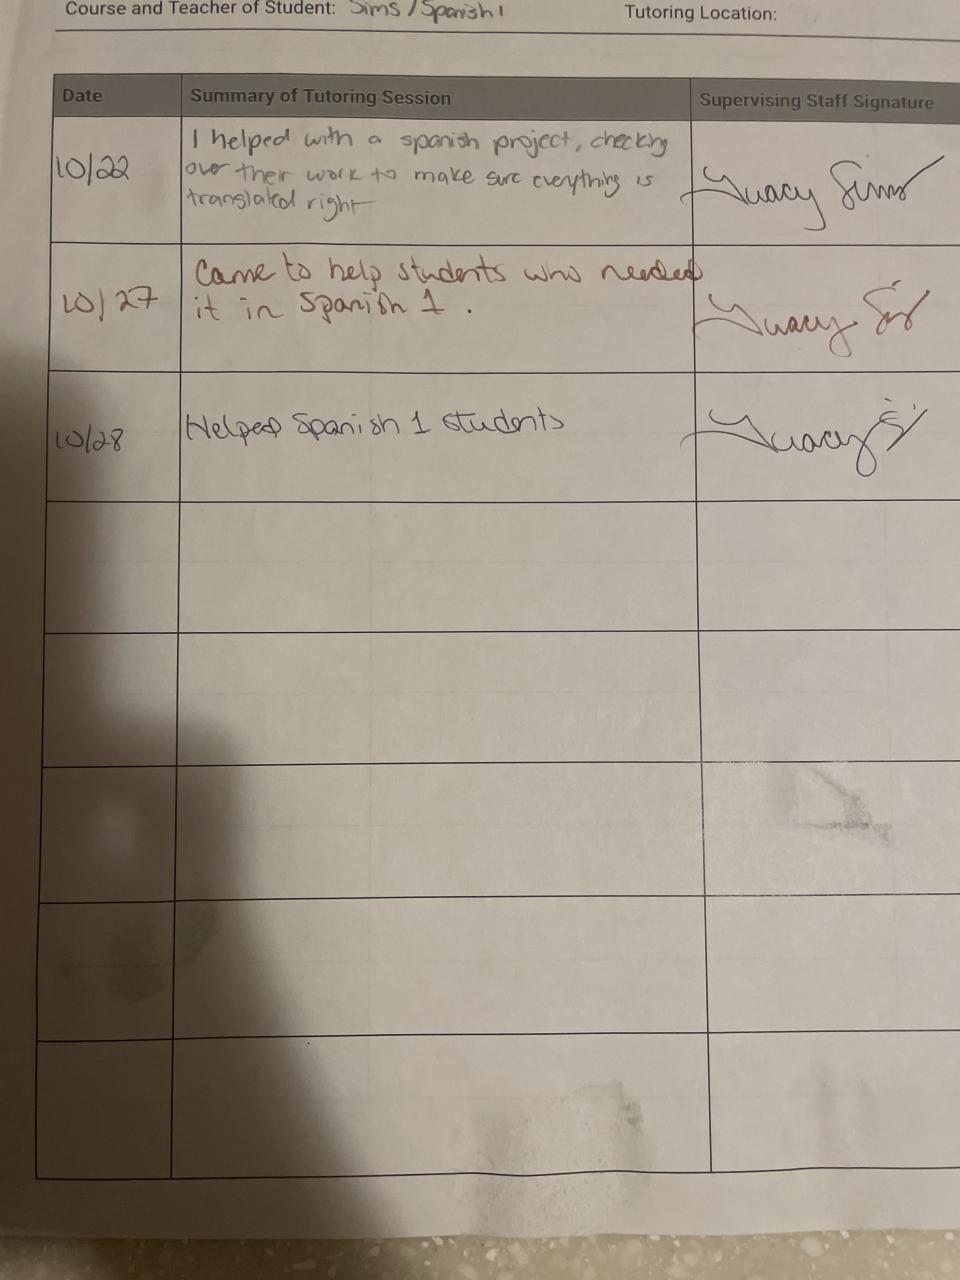 Course and Teacher of Student: Sims / Spanish 1
Tutoring Location:
Date
Summary of Tutoring Session
Supervising Staff Signature
10/22
I helped with a spanish project, checking
over their work to make sure everything is
translated right
Sims
10/27
Came to help students who needed
it in Spanish 1.
10/28
Helped Spanish 1 students